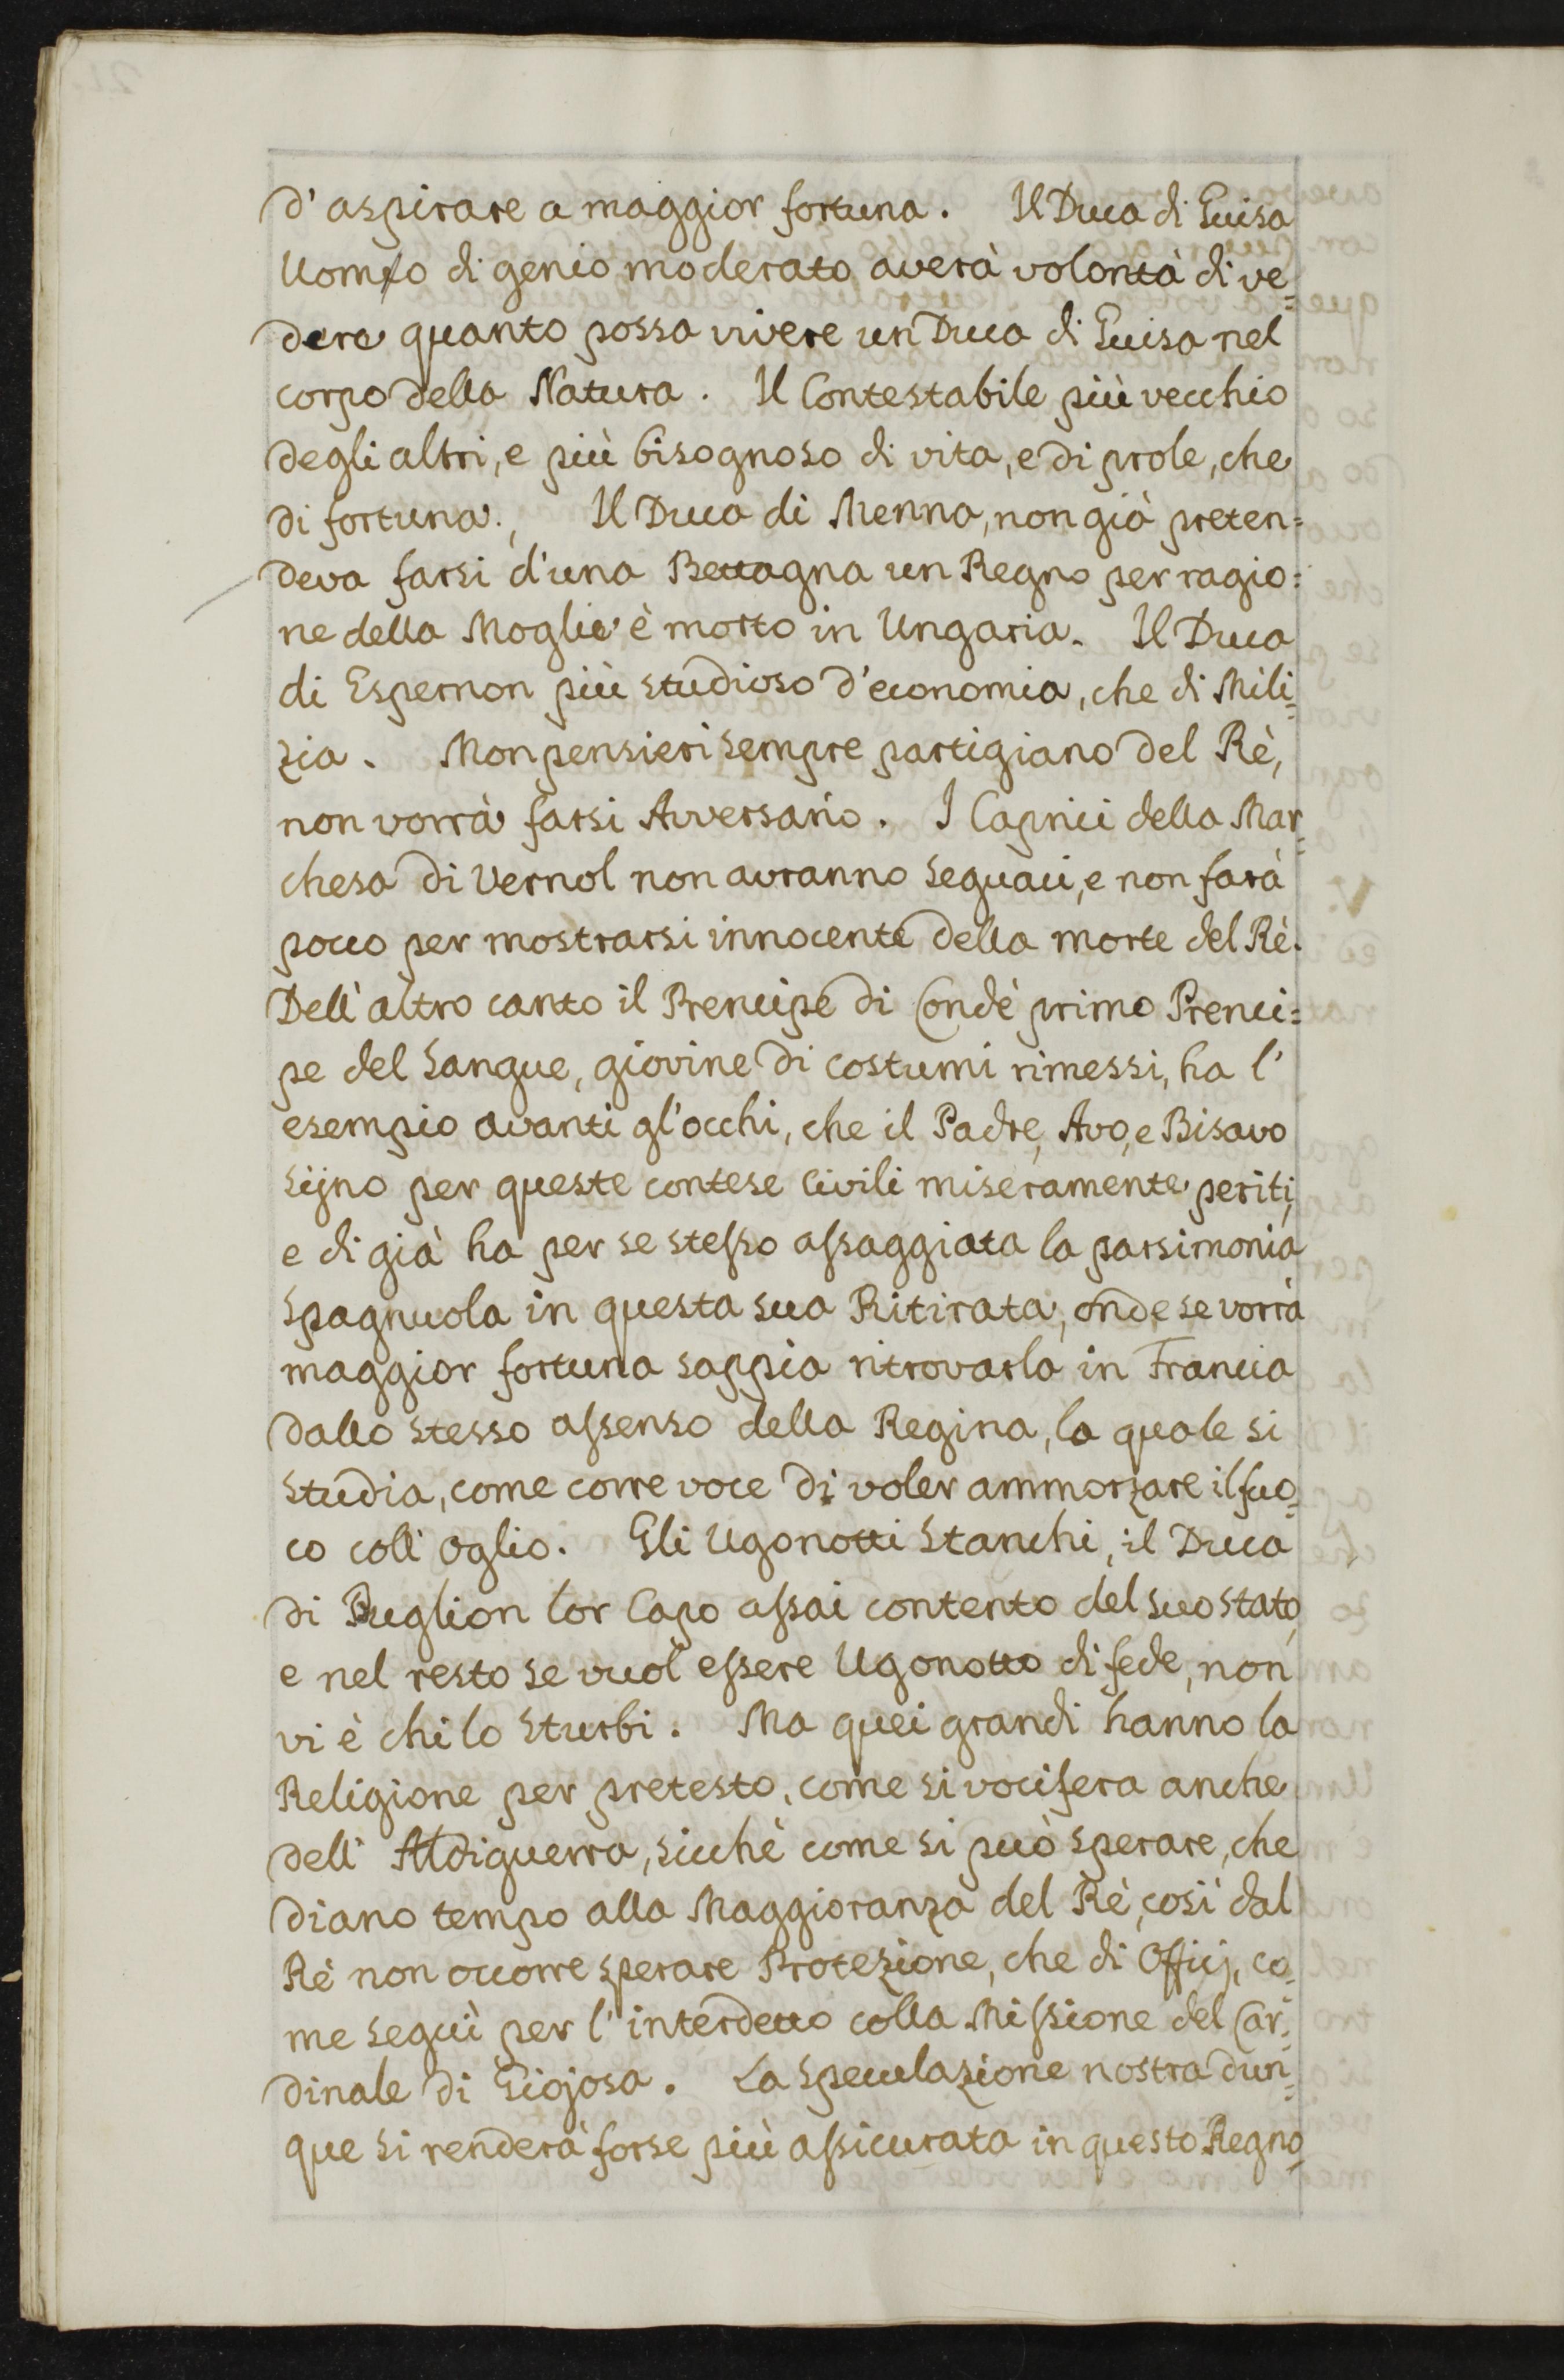 d'aspirare a maggior fortuna. Il Duca di Guisa
Uomo di genio moderato averà volontà di ve=
dere quanto possa vivere un Duca di Guisa nel
corpo della Natura. Il Contestabile più vecchio
degli altri, e più bisognoso di vita, e di prole, che
di fortuna. Il Duca di Menna, non già preten=
deva farsi d'una Bettagna un Regno per ragio=
ne della Moglie è morto in Ungaria. Il Duca
di Espernon più studioso d'economia, che di Mili=
zia. Monpensieri sempre partigiano del Rè,
non vorrà farsi Avversario. I Caprici della Mar=
chesa di Vernol non avranno seguaci, e non farà
poco per mostrarsi innocente della morte del Rè.
Dell'altro canto il Prencipe di Condè primo Prenci=
pe del Sangue, giovine di costumi rimessi, ha l'
esempio avanti gl'occhi, che il Padre, Avo, e Bisavo
sijno per queste contese Civili miseramente periti,
e di già ha per se stesso assaggiata la parsimonia
Spagnuola in questa sua Ritirata, onde se vorrà
maggior fortuna sappia ritrovarla in Francia
dallo stesso assenso della Regina, la quale si
studia, come corre voce di voler ammorzare il fuo=
co coll'oglio. Gli Ugonotti Stanchi, il Duca
di Buglion lor Capo assai contento del suo stato,
e nel resto se vuol essere Ugonotto di fede, non
vi è chi lo sturbi. Ma quei grandi hanno la
Religione per pretesto, come si vocifera anche
dell' Aldiguerra, sicchè come si può sperare, che
diano tempo alla Maggioranza del Rè, così dal
Rè non occorre sperare Protezione, che di Officj, co=
me seguì per l'interdetto colla Missione del Car=
dinale di Giojosa. La Speculazione nostra dun=
que si renderà forse più assicurata in questo Regno